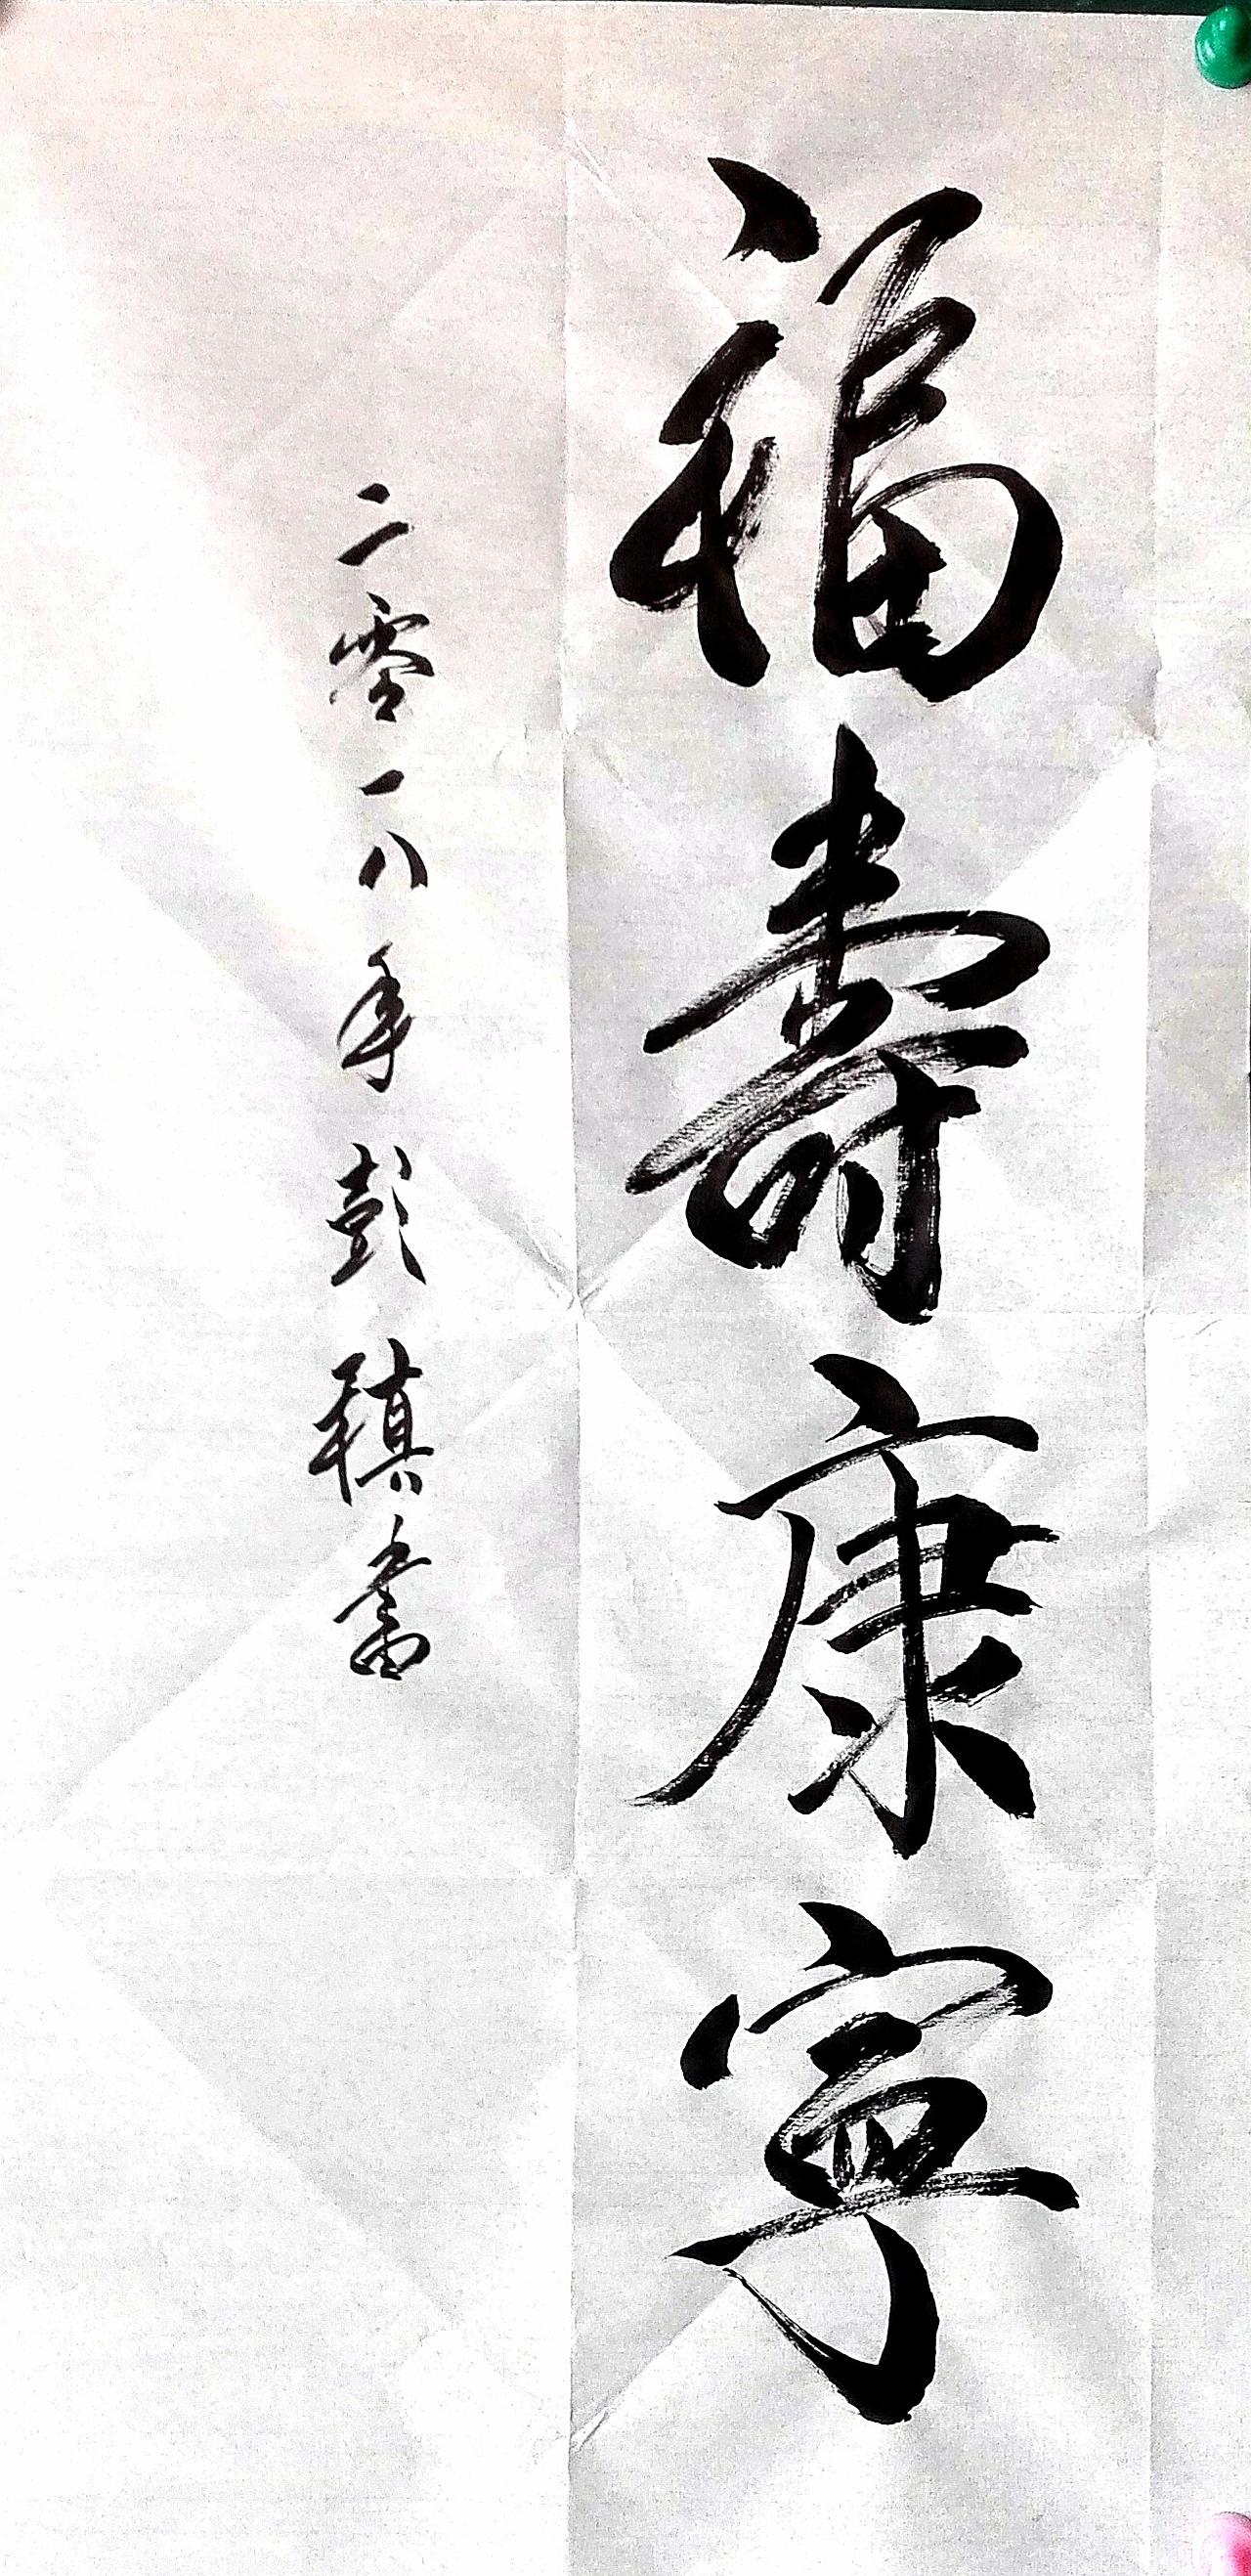 福壽康寧
二零一八年彭稹書